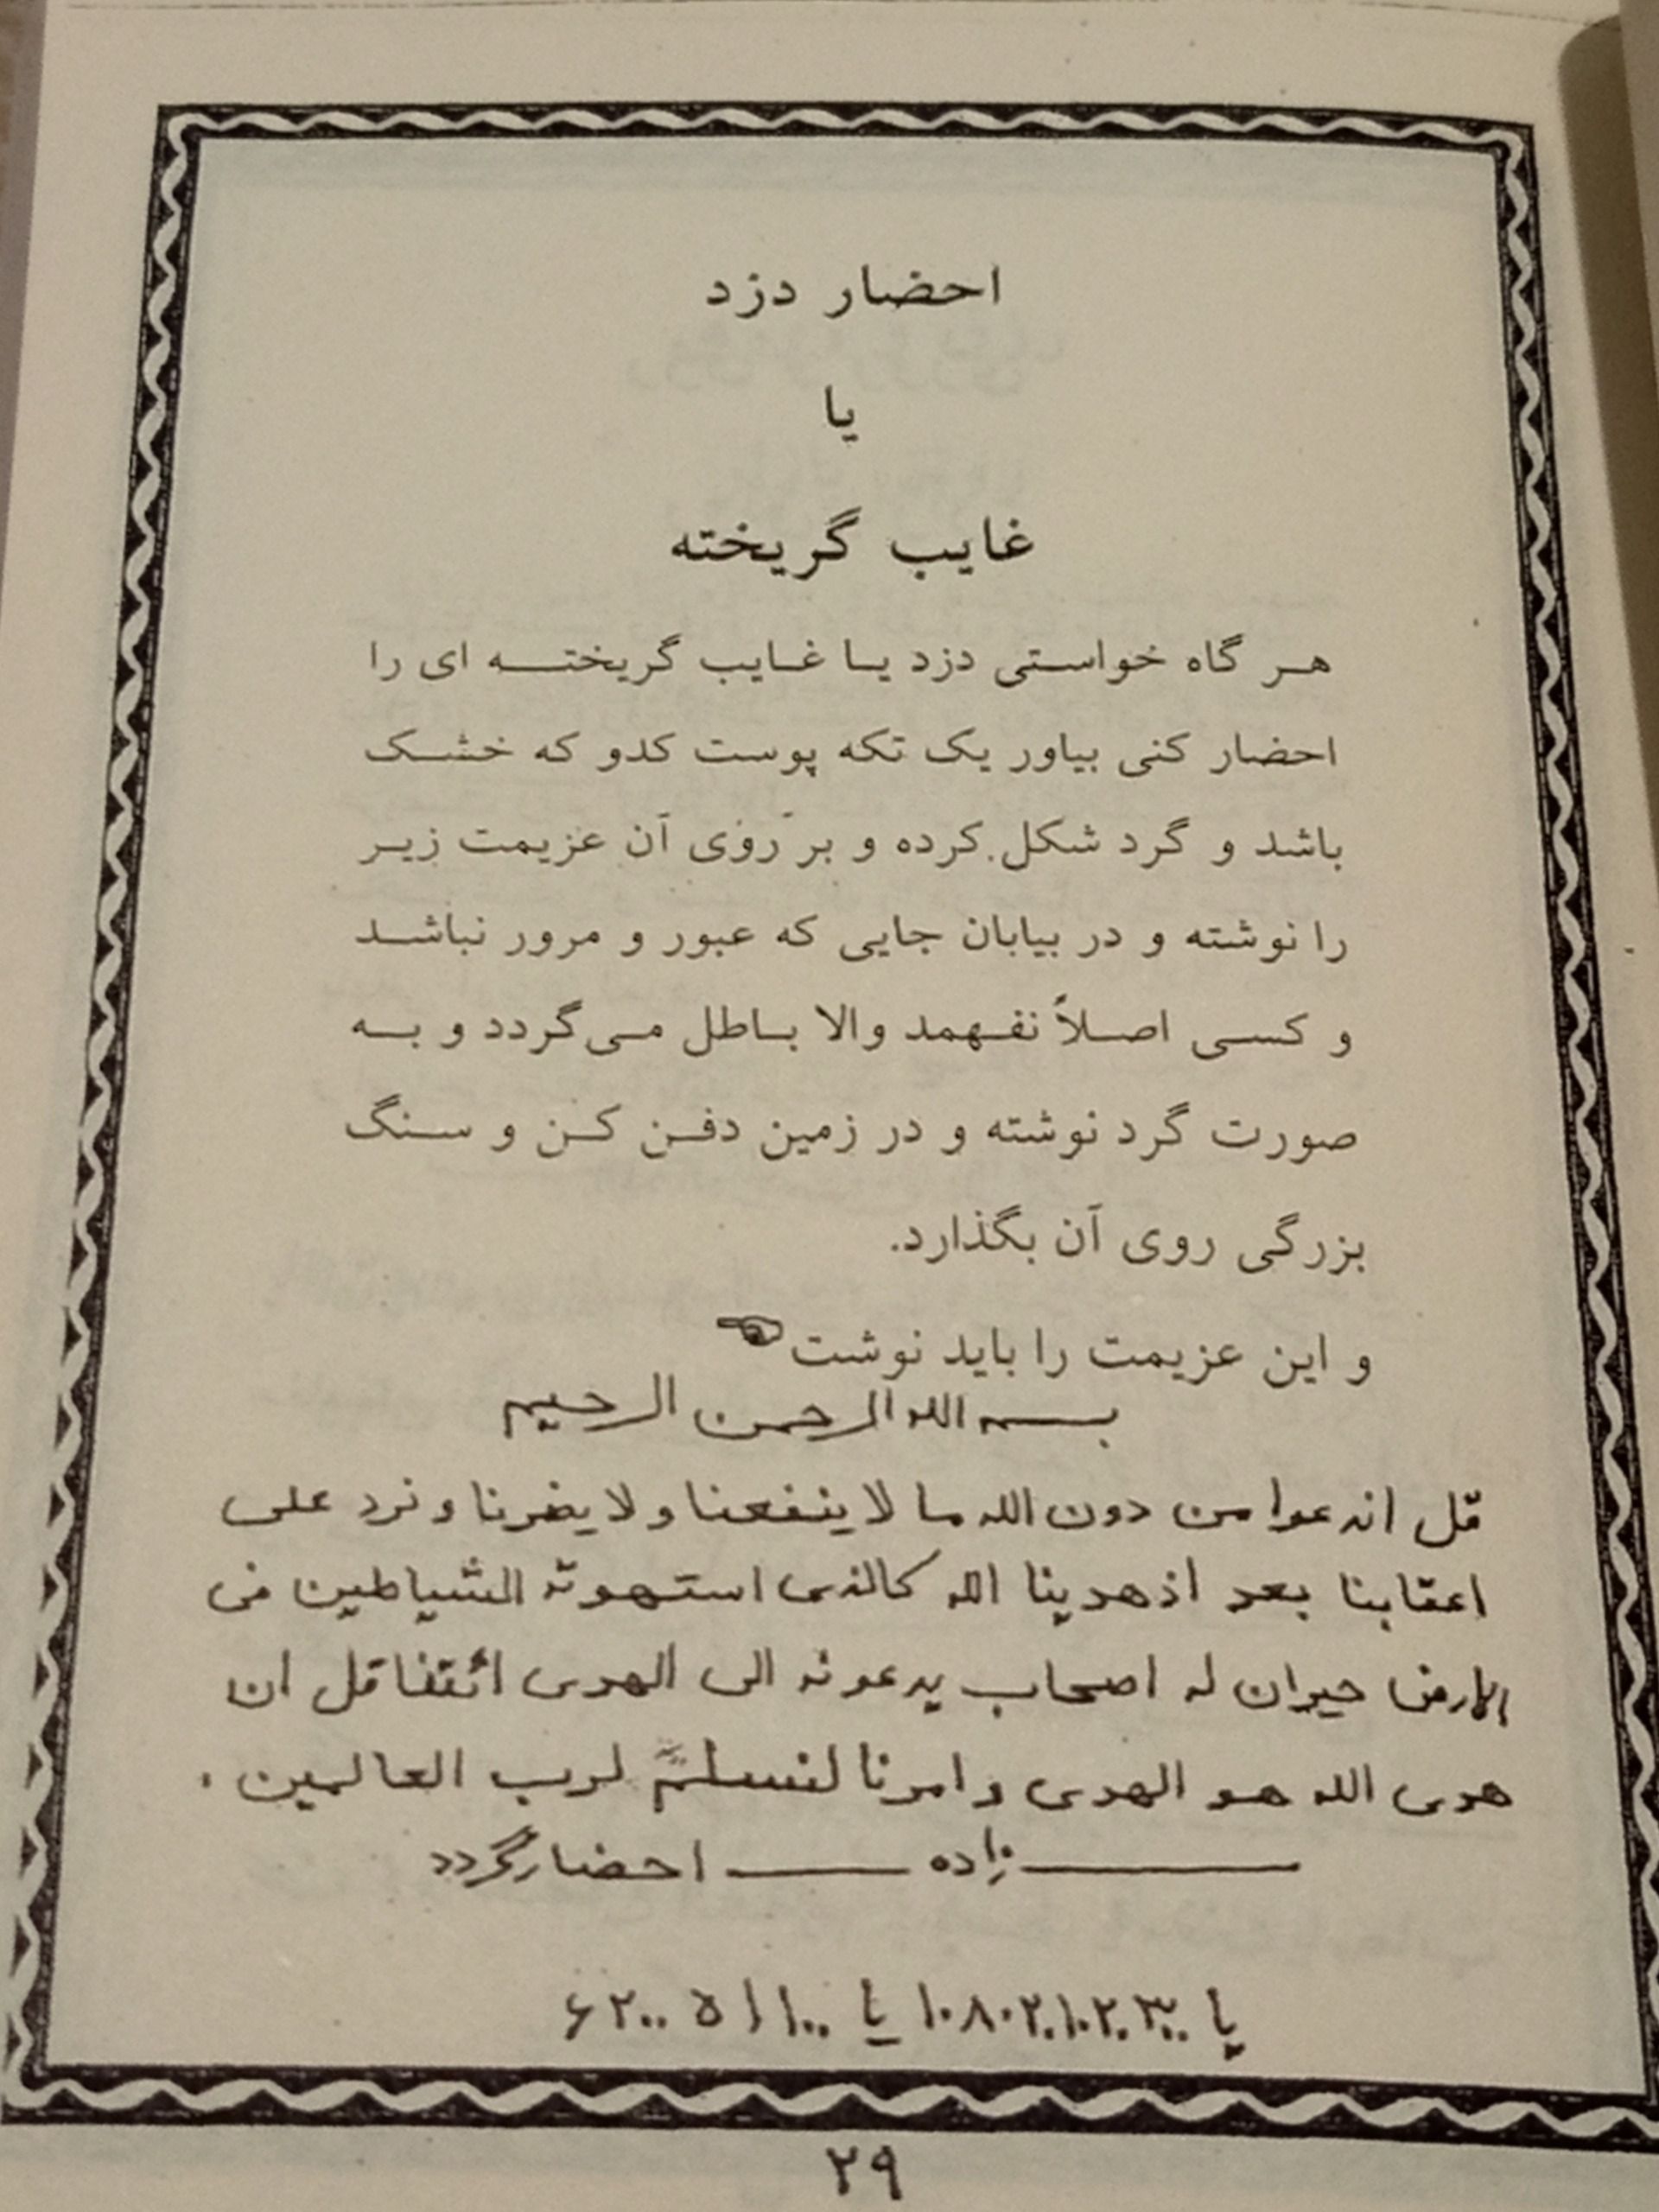 احضار دزد
یا
غایب گریخته
هر گاه خواستی دزد یا غایب گریخته ای را
احضار کنی بیاور یک تکه پوست کدو که خشک
باشد و گرد شکل کرده و بر روی آن عزیمت زیر
را نوشته و در بیابان جایی که عبور و مرور نباشد
و کسی اصلاً نفهمد والا باطل می‌گردد و به
صورت گرد نوشته و در زمین دفن کن و سنگ
بزرگی روی آن بگذارد.
و این عزیمت را باید نوشت
بسم الله الرحمن الرحیم
قل اندعوا من دون الله ما لا ینفعنا ولا یضرنا و نرد علی
اعقابنا بعد اذ هدینا الله کالذی استهوته الشیاطین فی
الارض حیران له اصحاب یدعونه الی الهدی ائتنا قل ان
هدی الله هو الهدی وامرنا لنسلم لرب العالمین .
زاده احضار گردد
یا
یا
۲۹